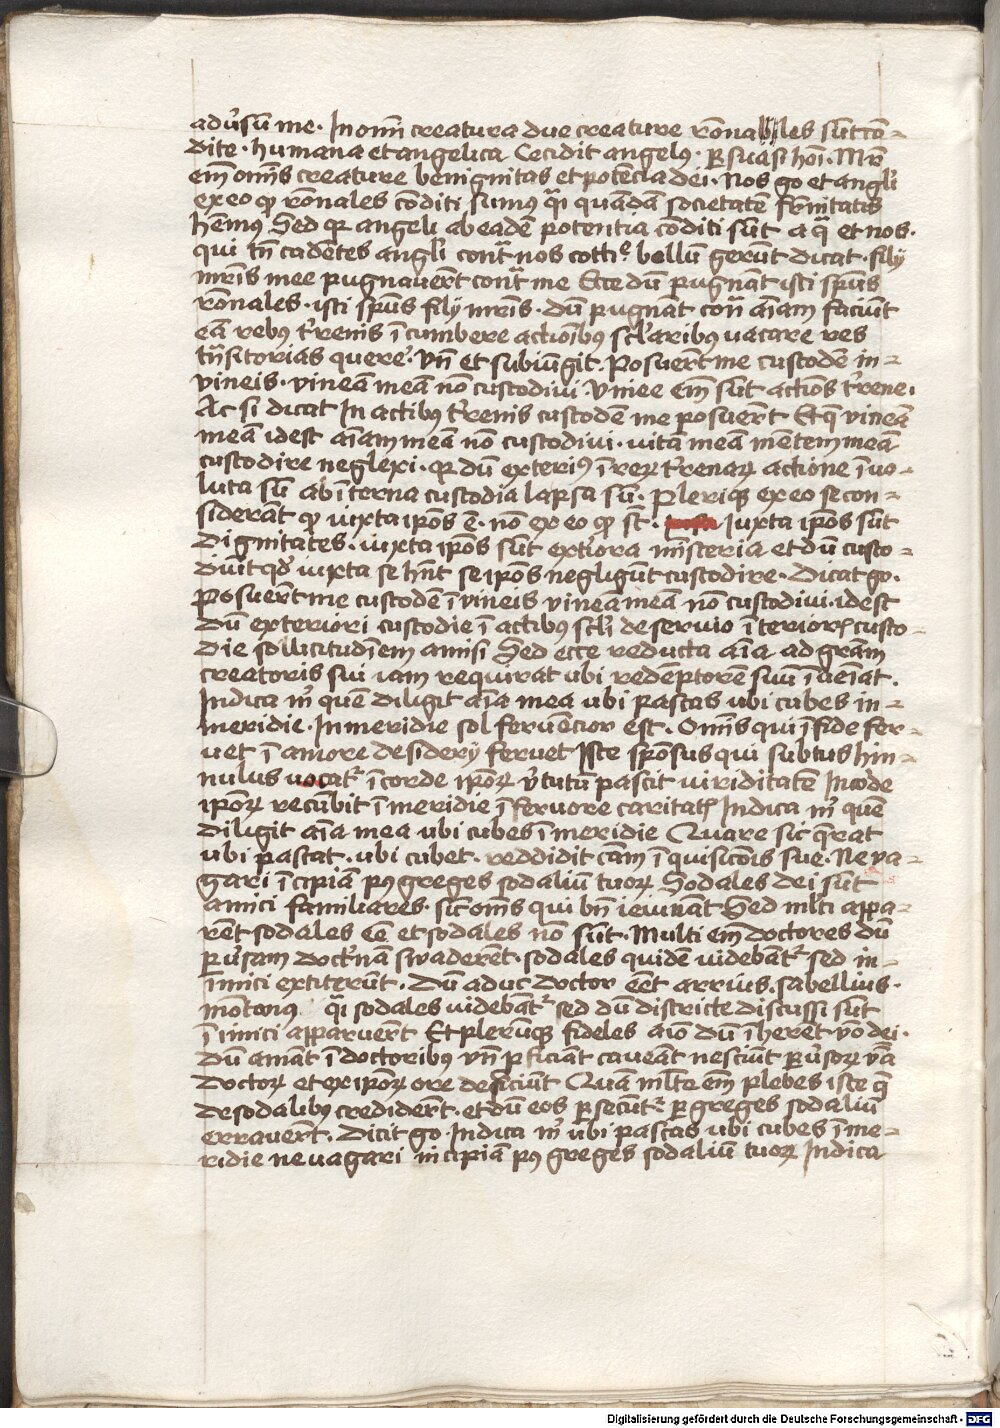 adũsũ me · In om̃i creatura due creature rõnabiles sũt cõ-
dite · humana et angelica Cecidit angelus · ꝑsuasit hoĩ · Mr̃
em̃ om̃is creature benignitas et potẽcia dei · Nos gͦ et angli
ex eo qp rõnales cõditi sumus qͣi quãdã societatẽ fr̃nitatis
hẽmus Sed qr angeli ab eadẽ potentia cõditi sũt a qͣ et nos ·
qui tñ cadẽtes angli contͣ nos cottie bellũ gerũt dicat · filij
mr̃is mee pugnauert̃ contͣ me Ecce dũ pugnãt isti sp̃us
rõnales · isti sp̃us filij mr̃is · dũ pugnãt conͣ aĩam faciũt
eã rebus tr̃enis ĩcumbere actiõibus sclãribus uacare res
tñsitorias quere᷑ · Vñ et subiũgit · Posuert̃ me custodẽ in-
vineis · vineã meã nõ custodiui · Vinee em̃ sũt actiõs tr̃ene ·
Ac si dicat In actibus tr̃enis custodẽ me posuert̃ Et qͣ vineã
meã idest aĩam meã nõ custodiui · vitã meã mẽtem meã
custodire neglexi · qr dũ exterius ĩ reꝝ tr̃enaꝝ actione ĩuo-
luta sũ ab ĩterna custodia lapsa sũ · Pleriqꝫ ex eo se con-
siderãt qp iuxta ip̃os ẽ · nõ ex eo qp st̃ · Iuxta ip̃os sũt
dignitates · iuxta ip̃os sũt extĩora mĩsteria et dũ custo-
diũt qď iuxta se hñt seip̃os negligũt custodire · Dicat gͦ ·
Posuert̃ me custodẽ ĩ vineis vineã meã nõ custodiui · idest
dũ exteriori custodie ĩ actibus scl̃i deseruio ĩterioris custo-
die sollicitudĩem amisi Sed ecce reducta aĩa ad gr̃am
creatoris sui iam requirat ubi redẽptorẽ suũ ĩueĩat ·
Indica mͥ quẽ diligit aĩa mea ubi pascas ubi cubes in-
meridie · In meridie sol feruẽcior est · Om̃is qui ĩ fide fer-
uet ĩ amore desiderij feruet Iste spõsus qui subtus hin-
nulus uocatᷣ ĩ corde ip̃oꝝ v̾tutũ pascit uiriditatẽ In cõde
ip̃oꝝ recũbit ĩ meridie ĩ feruore caritatis Indica mͥ quẽ
diligit aĩa mea ubi cubes ĩ meridie Quare sic q̃rat
ubi pascat · ubi cubet · reddidit cãm ĩquisicõis sue · Ne va-
gari ĩcipiã pꝰ greges sodaliũ tuoꝝ Sodales dei sũt
amici familiares · sic om̃s qui bñ ieiunãt Sed ml̃ti appa-
rẽt sodales eẽ et sodales nõ sũt · Multi em̃ doctores dũ
ꝑũsam doct̾nam swaderẽt · sodales quidẽ uidebãtᷣ sed in-
ĩmici extiterũt · Dũ aduc doctor eẽt arrius · sabellius ·
mõtanus qͣi sodales uidebãtᷣ sed dũ districte discussi sũt
ĩimici apparuerũt Et plerũqꝫ fideles aĩo dũ ĩherẽt ṽo dei ·
dũ amãt ĩ doctoribus vñ ꝓficiãt caueãt nesciũt ꝑũsoꝝ ṽa
doctoꝝ et ex ip̃oꝝ ore deficiũt Quã ml̃te em̃ plebes iste qͣ
de sodalibus crediderũt · et dũ eos ꝑsecũtᷣ ꝑ greges sodaliũ
errauerũt · Dicit gͦ · Indica mͥ ubi pascas ubi cubes ĩ me-
ridie ne uagari incipiã pꝰ greges sodaliũ tuoꝝ Indica
Digitalisierung gefördert durch die Deutsche Forschungsgemeinschaft · DFG